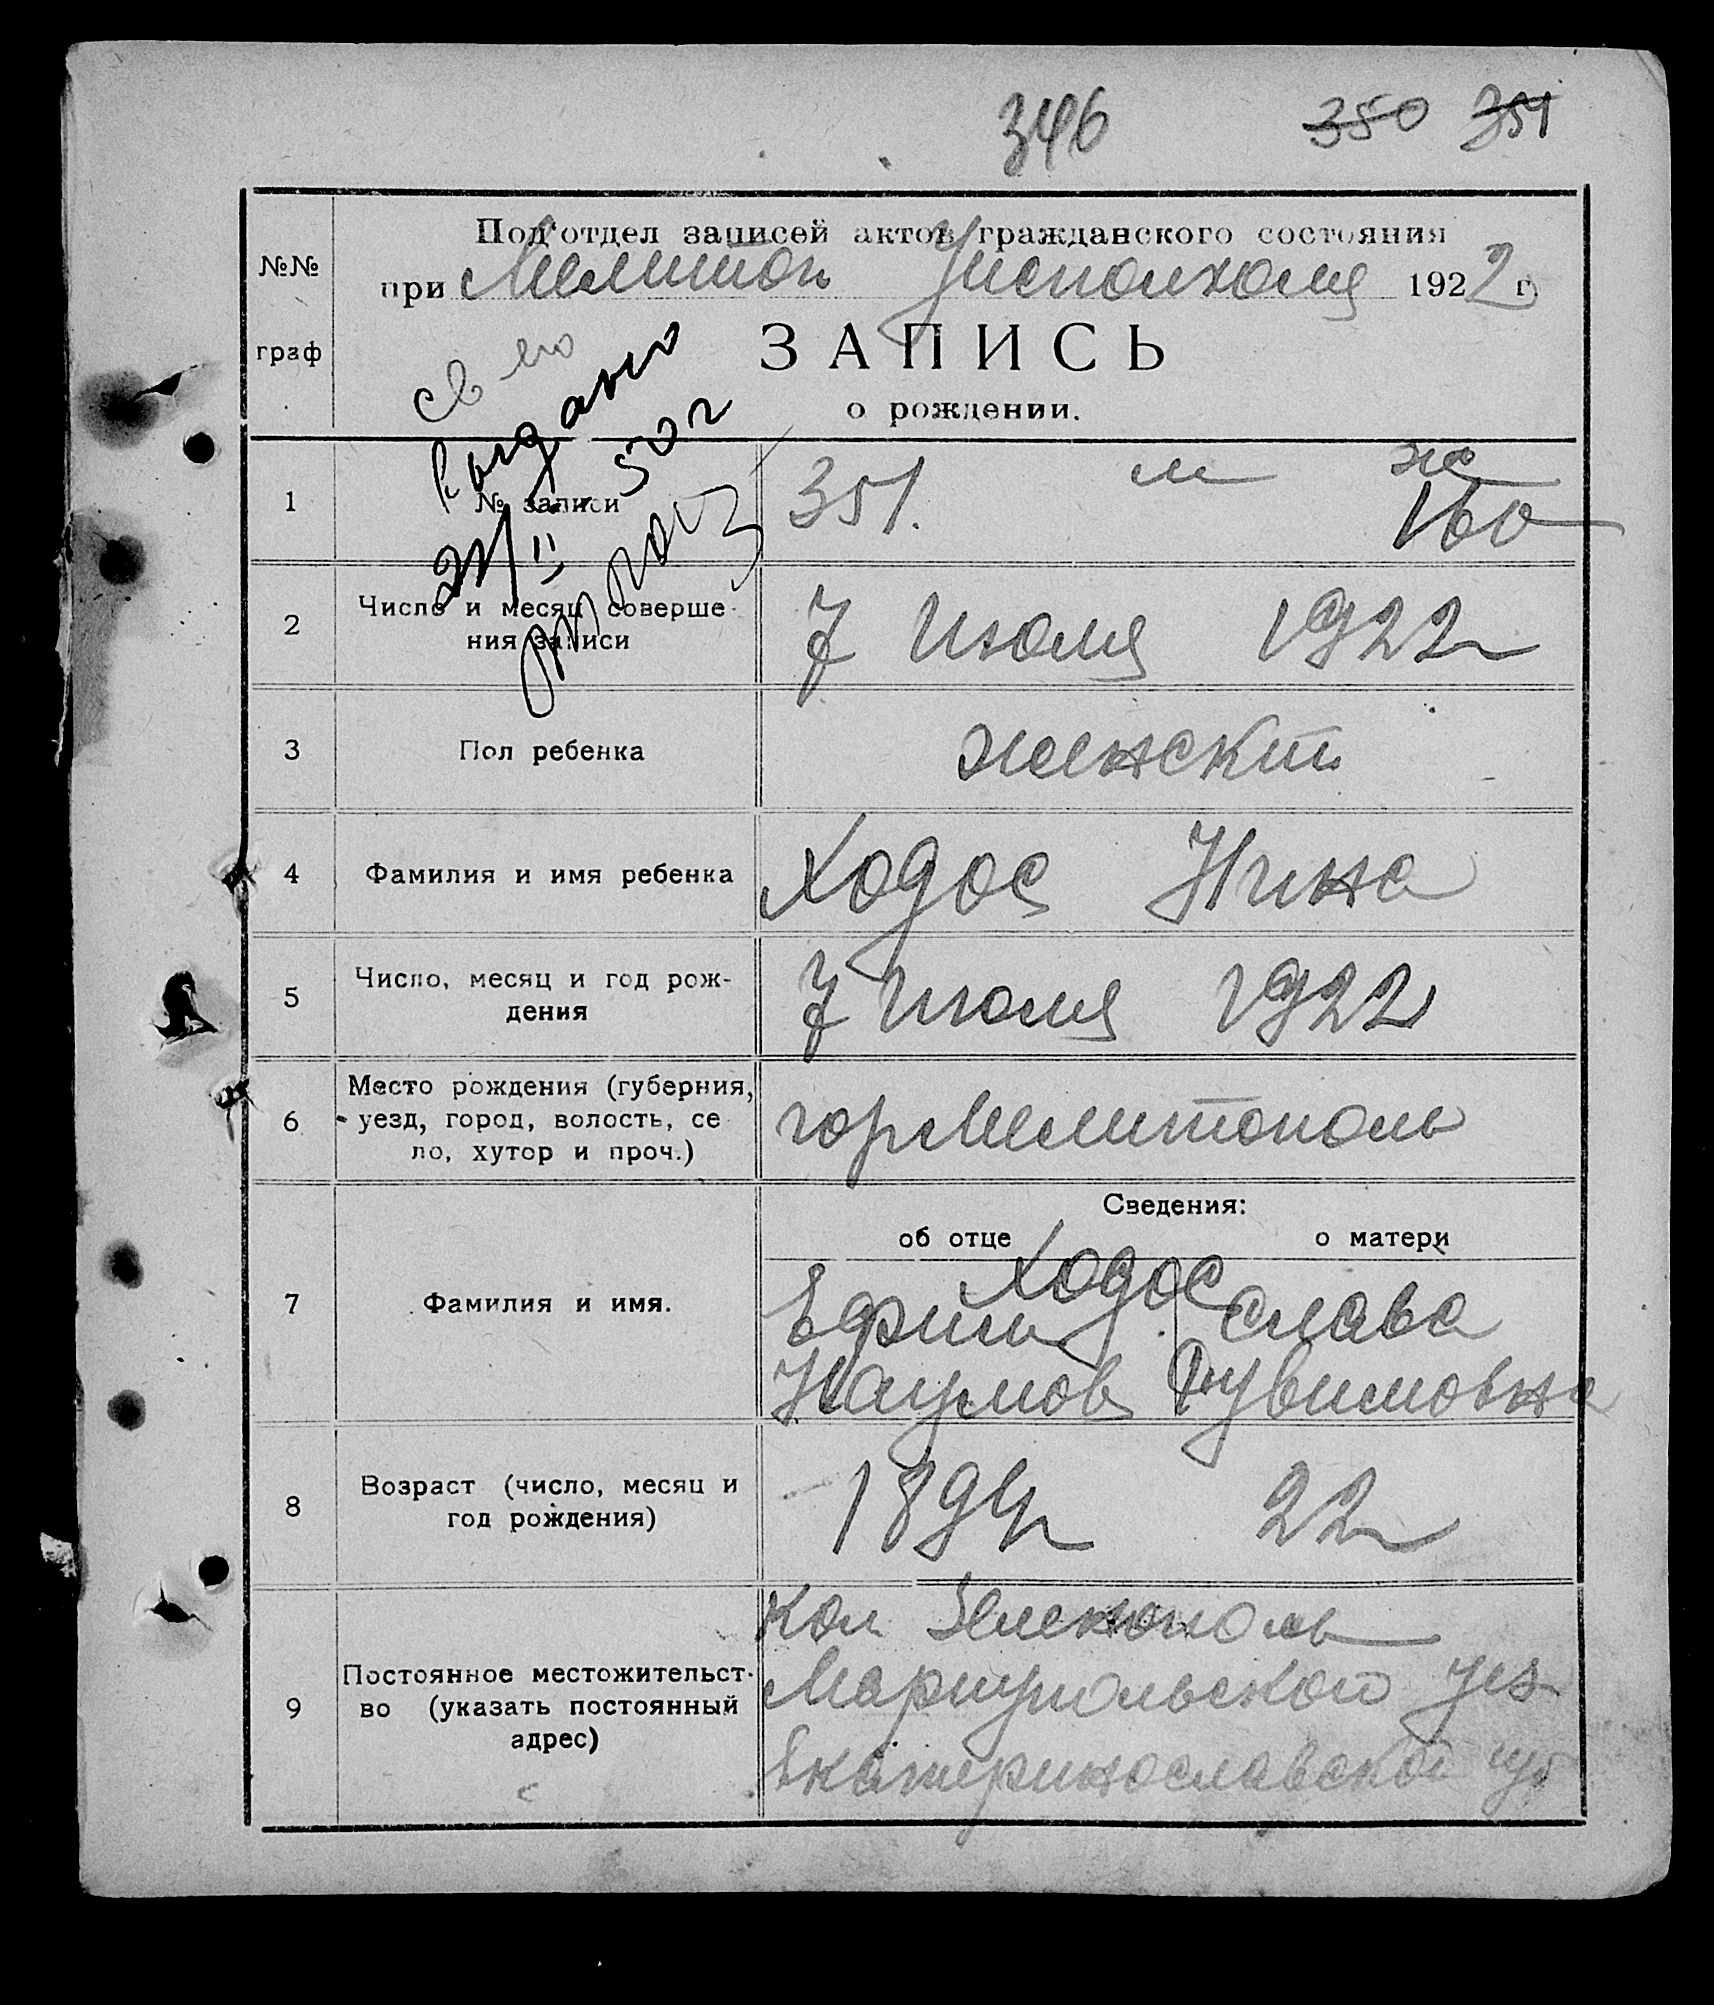 346 350 351
Под'отдел записей актов гражданского состояния
№№
при Мелитоп Уисполкома 1922 г.
граф
ЗАПИСЬ
о рождении.
св
выдано
21/II 50 г
1 № записи 351. м ж
160
2 Число и месяц соверше-
ния записи
7 Июля 1922
3 Пол ребенка женский
4 Фамилия и имя ребенка Ходос Нина
5 Число, месяц и год рож-
дения
7 Июля 1922
6 Место рождения (губерния,
уезд, город, волость, се
ло, хутор и проч.)
гор Мелитополь
Сведения:
об отце о матери
7 Фамилия и имя.
Ходос
Ефим Слава
Наумов Рувимовна
8 Возраст (число, месяц и
год рождения)
1894 22
9 Постоянное местожительст-
во (указать постоянный
адрес)
кол Зеленополь
Мариупольской уез
Екатеринославской губ